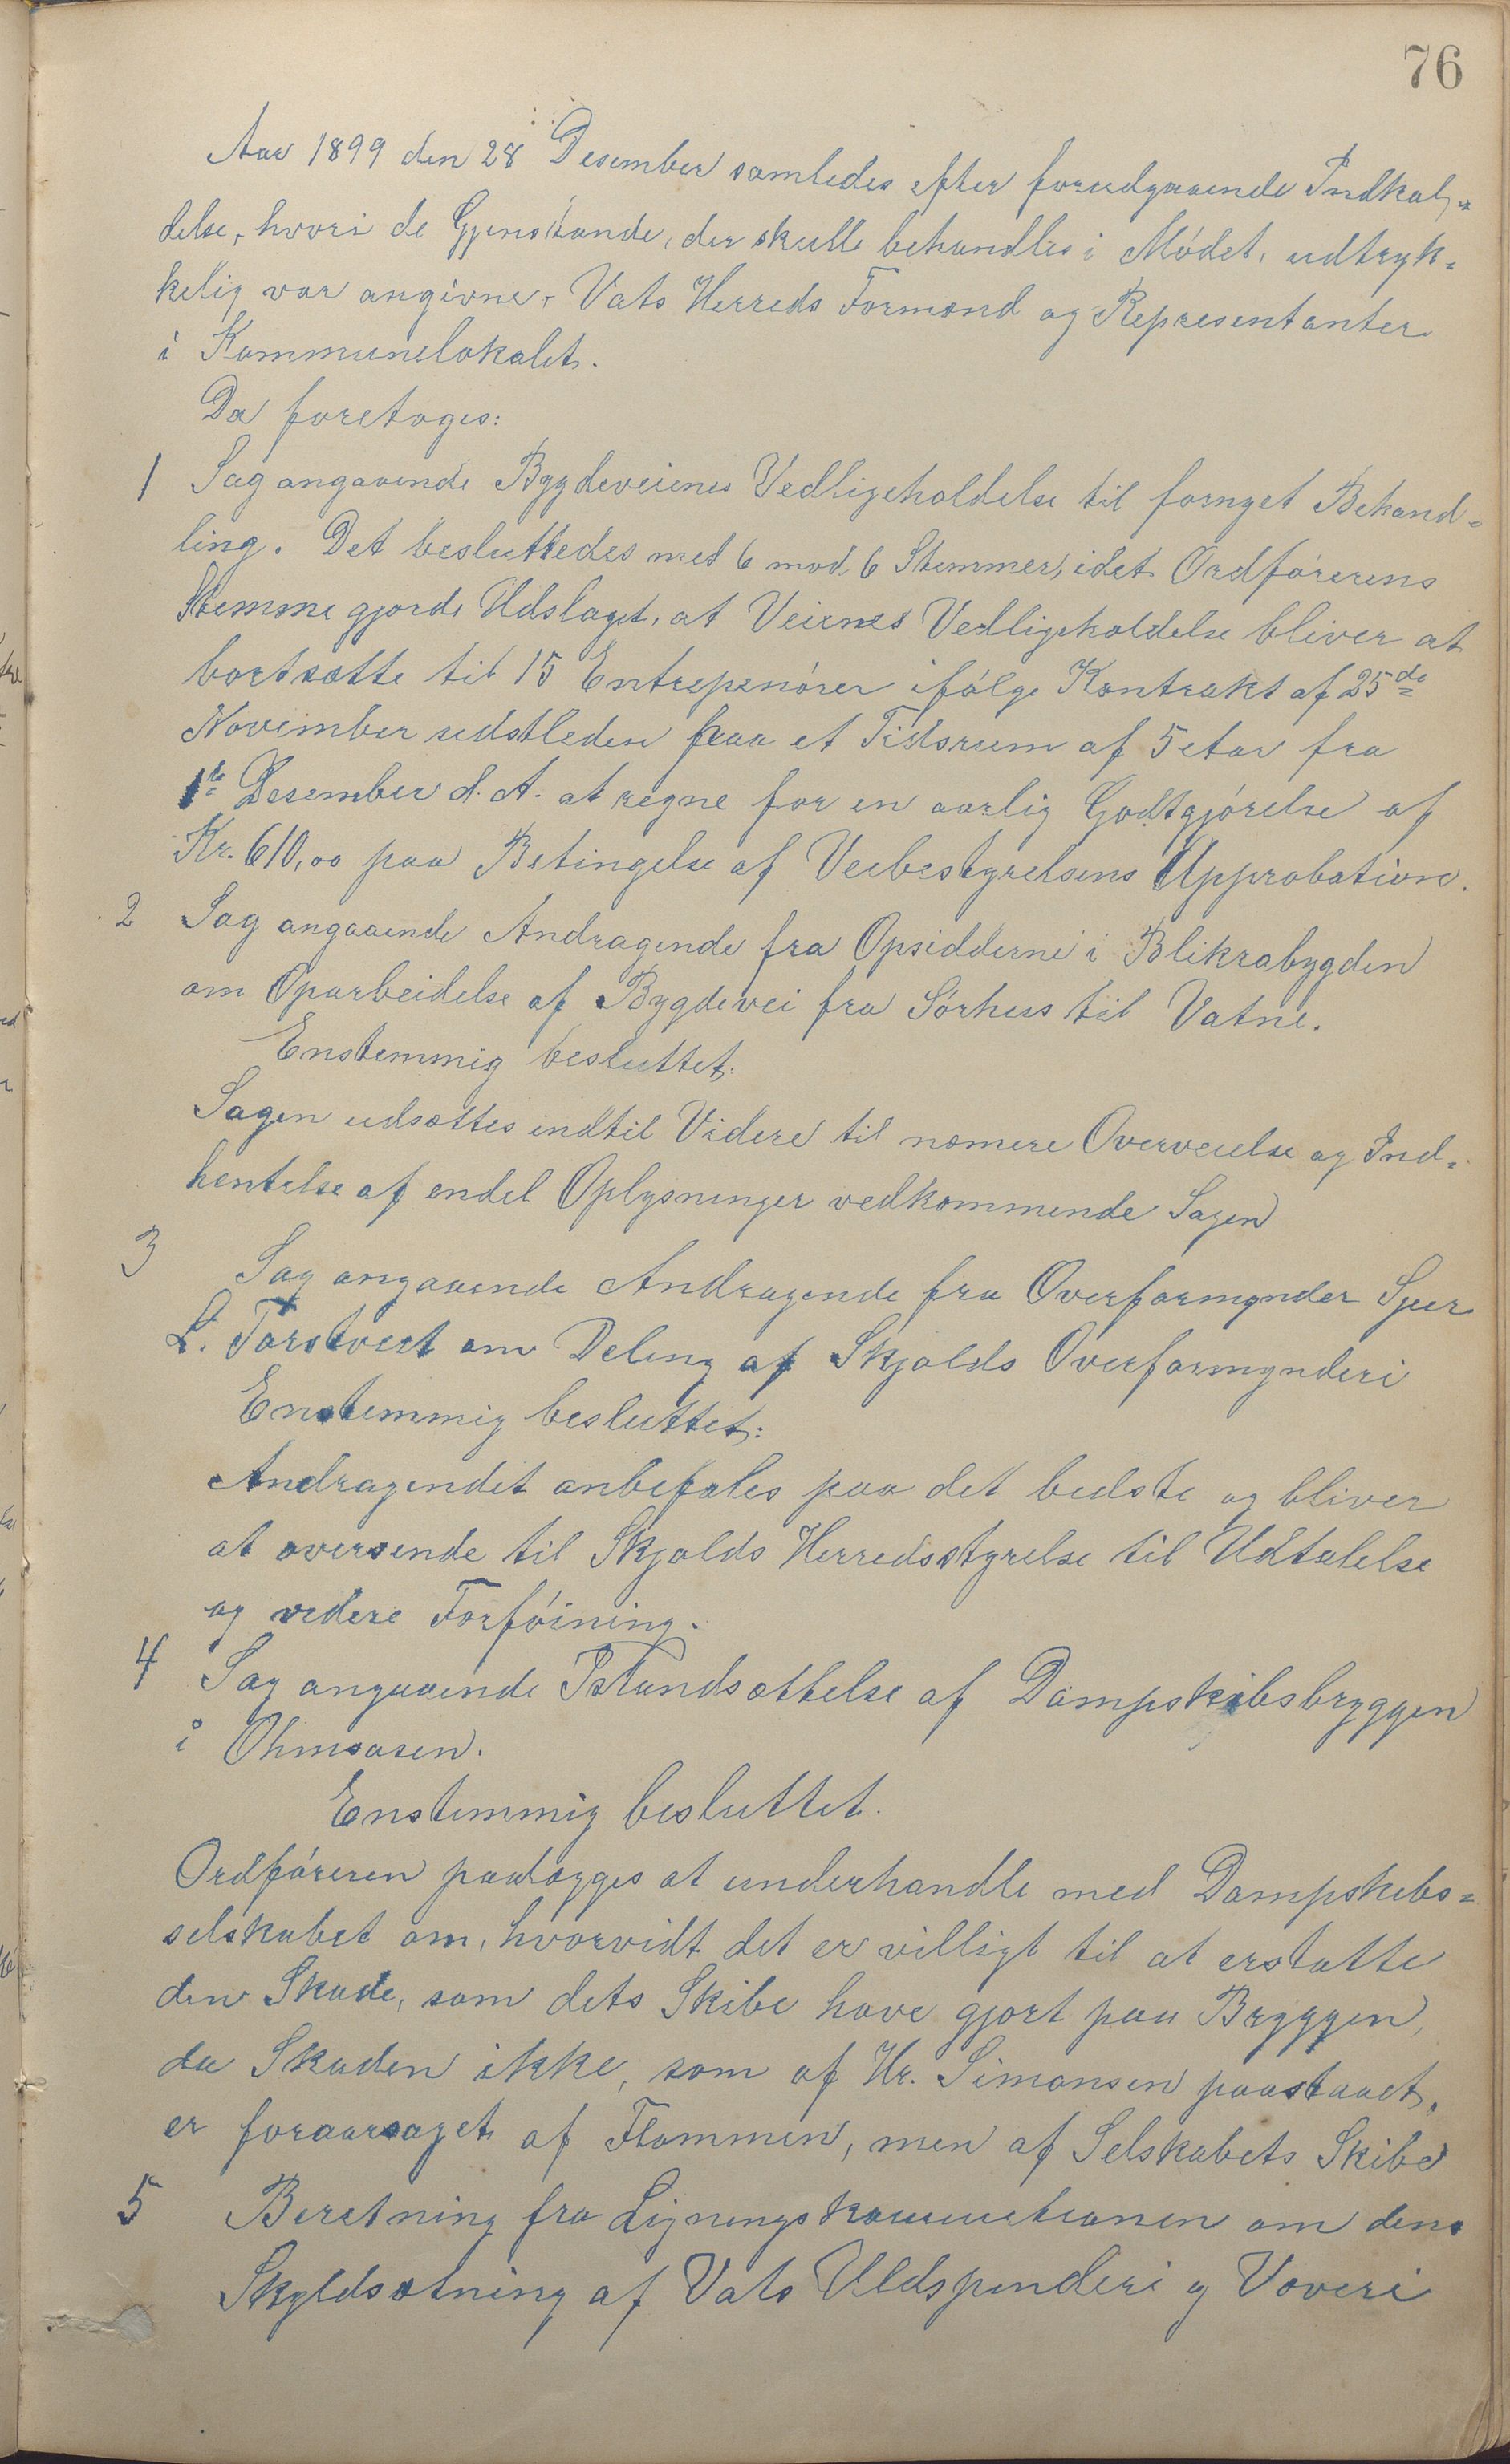 76
Aar 1899 den 28 Desember samledes efter forudgaaende Indkal=
delse, hvori de Gjenstande, der skulle behandles i Mødet, udtryk=
kelig var angivne, Vats Herreds Formænd og Repræsentanter
i Kommunelokalet.
Da foretoges:
1 Sag angaaende Bygdeveienes Vedligeholdelse til fornyet Behand=
ling. Det besluttedes med 6 mod 6 Stemmer, idet Ordførerens
Stemme gjorde Udslaget, at Veienes Vedligeholdelse bliver at
bortsætte til 15 Entrepenører ifølge Kontrakt af 25de
November sidstleden paa et Tidsrum af 5 etar fra
1te Desember d. A. at regne for en aarlig Godtgjørelse af
Kr. 610,00 paa Betingelse af Veibestyrelsens Approbation.
2 Sag angaaende Andragende fra Opsidderne i Blikrabygden
om Oparbeidelse af Bygdevei fra Sørhus til Vatne.
Enstemmig besluttet:
Sagen udsættes indtil Videre til næmere Overveielse og Ind=
hentelse af endel Oplysninger vedkommende Sagen
3 Sag angaaende Andragende fra Overformynder Sjur
L. Torstveit om Deling af Skjolds Overformynderi
Enstemmig besluttet:
Andragendet anbefales paa det bedste og bliver
at oversende til Skjolds Herredsstyrelse til Udtalelse
og videre Forføining.
4 Sag angaaende Istandsættelse af Dampskibsbryggen
i Ølmsaasen.
Enstemmig besluttet.
Ordføreren paalægges at underhandle med Dampskibs=
selskabet om, hvorvidt det er villigt til at erstatte
den Skade, som dets Skibe have gjort paa Bryggen,
da Skaden ikke, som af Hr. Simonsen paastaaet,
er foraarsaget af Flommen, men af Selskabets Skibe
5 Beretning fra Ligningskommissionen om dens
Skyldsætning af Vats Uldspinderi og Væveri